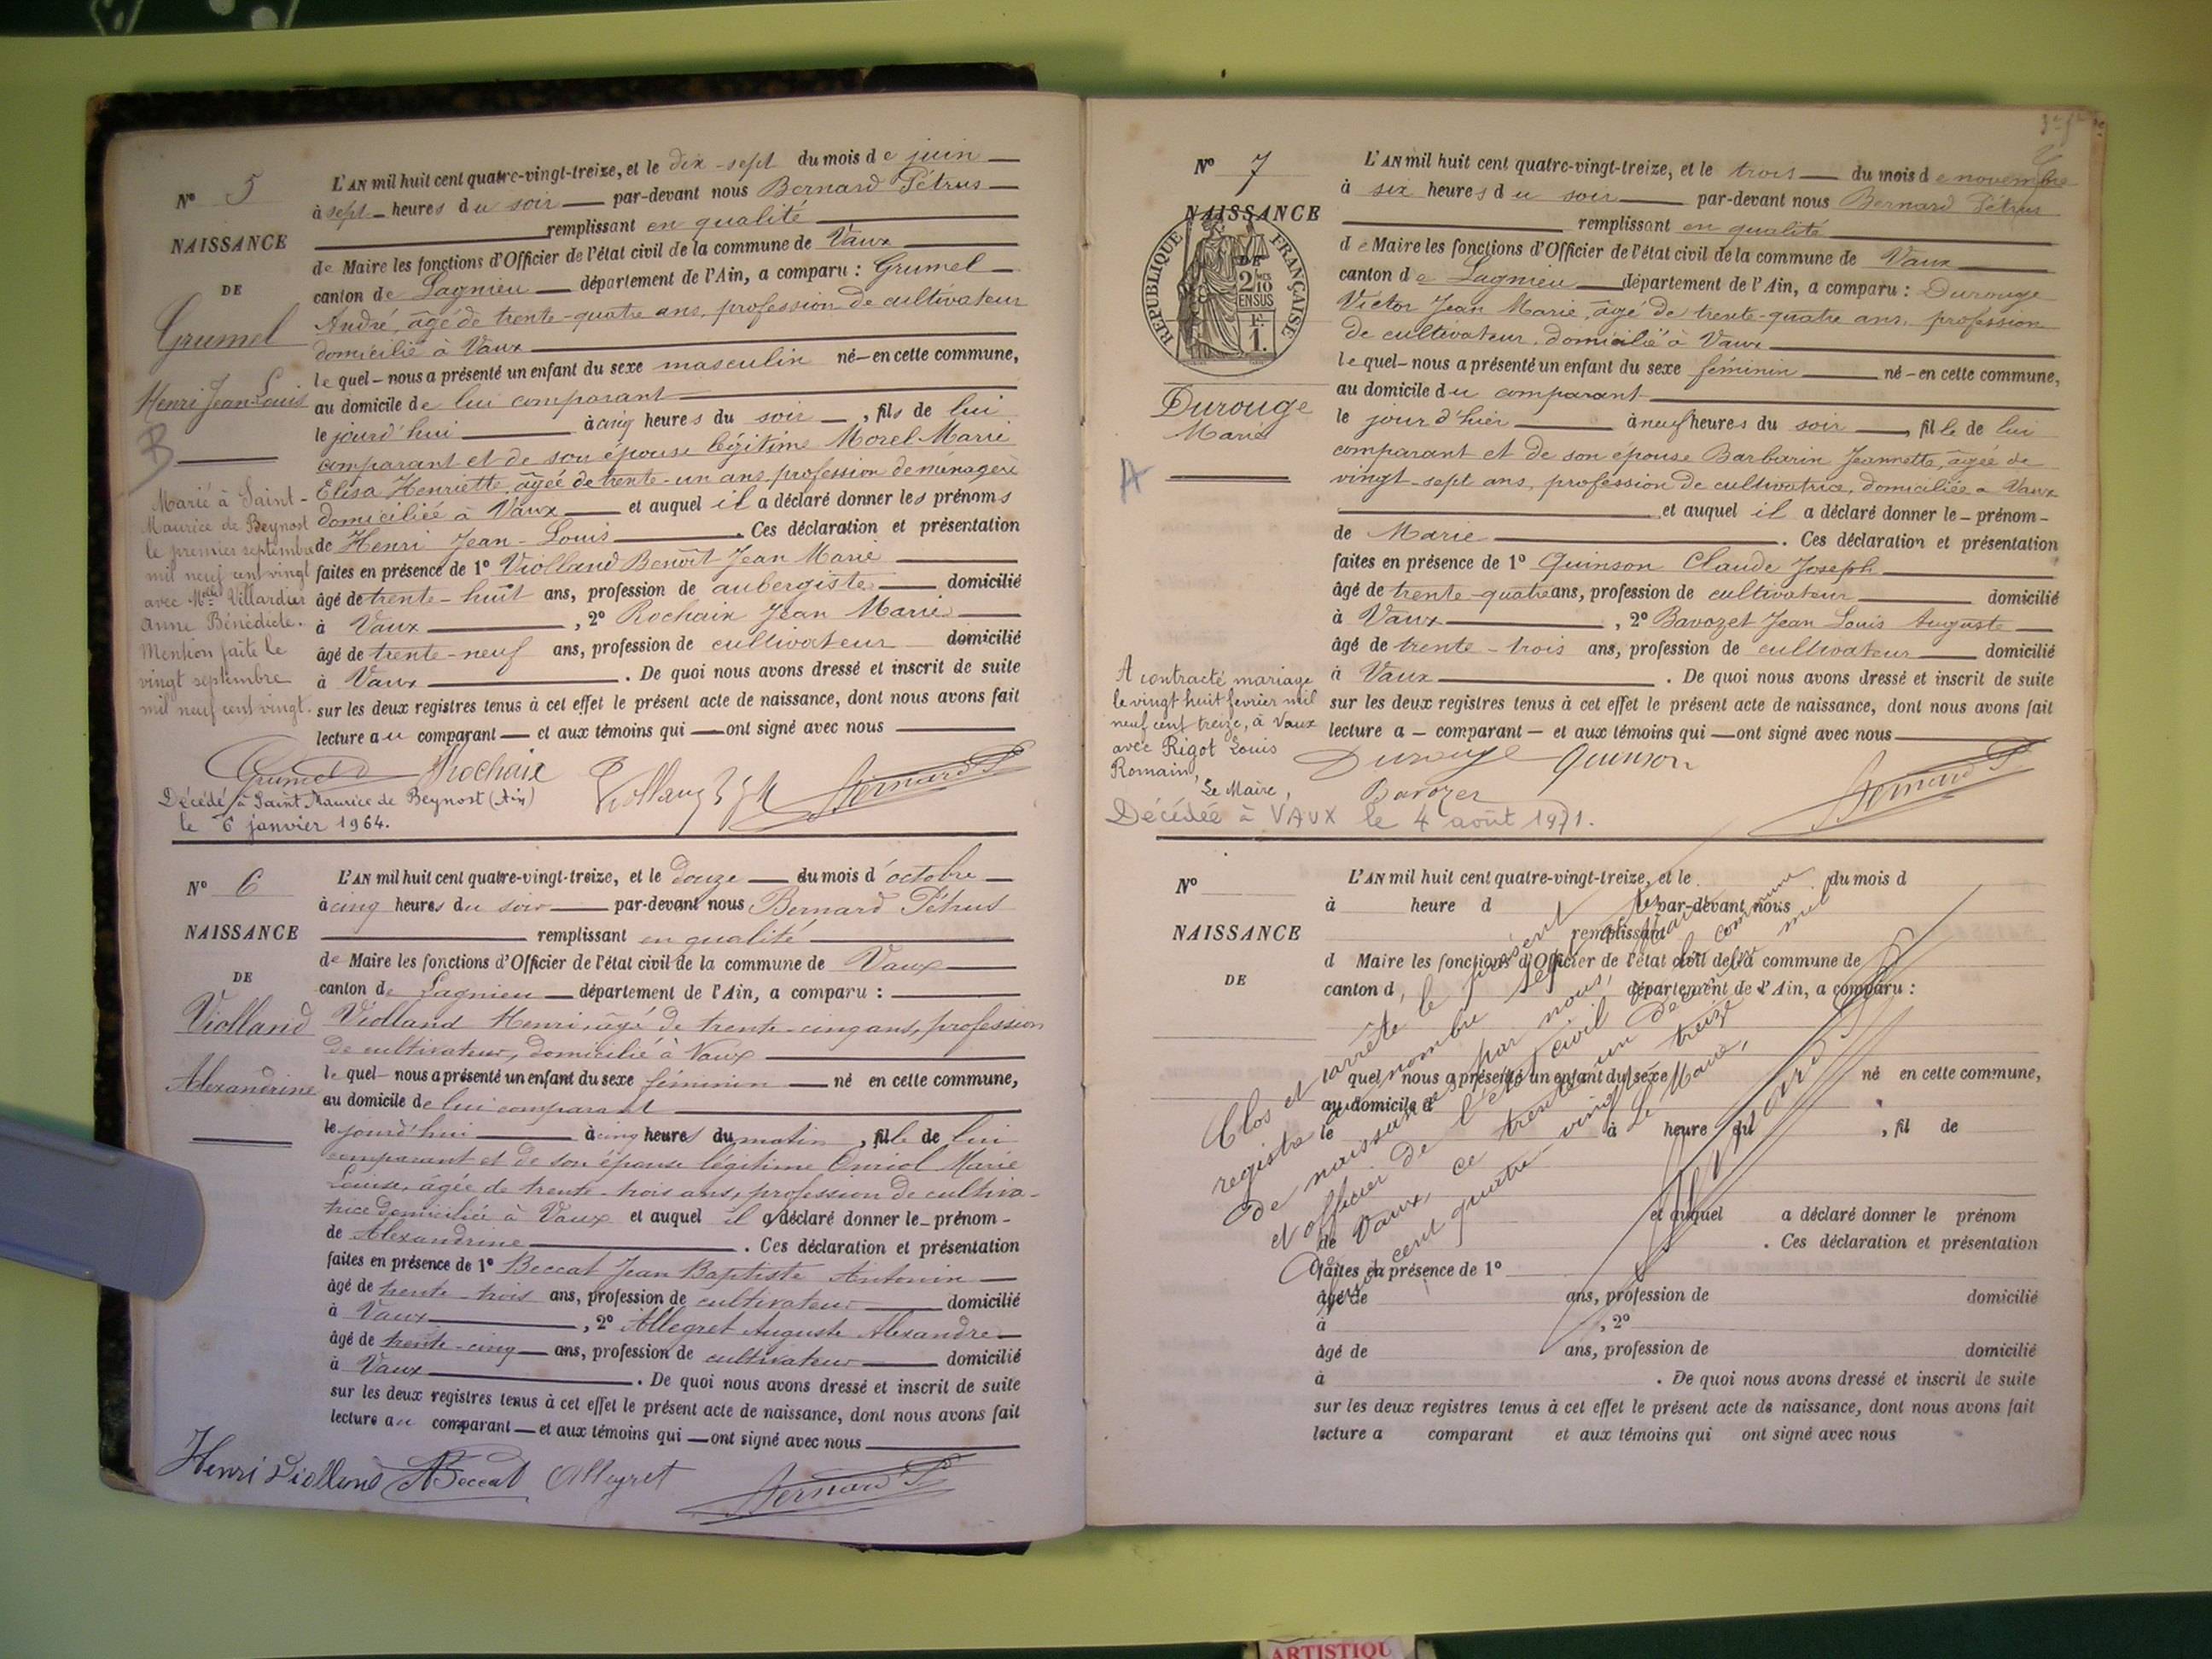 N° 5
NAISSANCE
DE
Grumel
Henri Jean-Louis
B
Marié à Saint-
Maurice de Beynost
le premier septembre
mil neuf cent vingt
avec Melle Villardier
Anne Bénédicte.
Mention faite le
vingt septembre
mil neuf cent vingt.
L'AN mil huit cent quatre-vingt-treize, et le dix-sept du mois de juin
à sept heures du soir par-devant nous Bernard Pétrus
remplissant en qualité
de Maire les fonctions d'Officier de l'état civil de la commune de Vaux
canton de Lagnieu département de l'Ain, a comparu : Grumel
André, âgé de trente-quatre ans, profession de cultivateur
domicilié à Vaux
lequel nous a présenté un enfant du sexe masculin né en cette commune,
au domicile de lui comparant
le jourd'hui à cinq heures du soir, fils de lui
comparant et de son épouse légitime Morel Marie
Elisa Henriette, âgée de trente-un ans, profession de ménagère
domiciliée à Vaux et auquel il a déclaré donner les prénoms
de Henri Jean-Louis. Ces déclaration et présentation
faites en présence de 1° Violland Benoît Jean Marie
âgé de trente-huit ans, profession de aubergiste domicilié
à Vaux, 2° Rochaix Jean Marie
âgé de trente-neuf ans, profession de cultivateur domicilié
à Vaux. De quoi nous avons dressé et inscrit de suite
sur les deux registres tenus à cet effet le présent acte de naissance, dont nous avons fait
lecture au comparant et aux témoins qui ont signé avec nous
Grumel Rochaix Violland Bernard P.
Décédé à Saint Maurice de Beynost (Ain)
le 6 janvier 1964.
N° 6
NAISSANCE
DE
Violland
Alexandrine
L'AN mil huit cent quatre-vingt-treize, et le douze du mois d'octobre
à cinq heures du soir par-devant nous Bernard Pétrus
remplissant en qualité
de Maire les fonctions d'Officier de l'état civil de la commune de Vaux
canton de Lagnieu département de l'Ain, a comparu :
Violland Henri, âgé de trente-cinq ans, profession
de cultivateur, domicilié à Vaux
lequel nous a présenté un enfant du sexe féminin né en cette commune,
au domicile de lui comparant
le jourd'hui à cinq heures du matin, fille de lui
comparant et de son épouse légitime Marie
Louise, âgée de trente-trois ans, profession de cultiva-
trice domiciliée à Vaux et auquel il a déclaré donner le prénom
de Alexandrine. Ces déclaration et présentation
faites en présence de 1° Beccat Jean Baptiste Antonin
âgé de trente-trois ans, profession de cultivateur domicilié
à Vaux, 2° Allegret Auguste Alexandre
âgé de trente-cinq ans, profession de cultivateur domicilié
à Vaux. De quoi nous avons dressé et inscrit de suite
sur les deux registres tenus à cet effet le présent acte de naissance, dont nous avons fait
lecture au comparant et aux témoins qui ont signé avec nous
Henri Violland Beccat Allegret Bernard P.
N° 7
NAISSANCE
DE
RÉPUBLIQUE FRANÇAISE
2/10
EN SUS
1.
Durouge
Marie
A
A contracté mariage
le vingt huit fevrier mil
neuf cent treize, à Vaux
avec Rigot Louis
Romain,
Le Maire,
L'AN mil huit cent quatre-vingt-treize, et le trois du mois de novembre
à six heures du soir par-devant nous Bernard Pétrus
remplissant en qualité
de Maire les fonctions d'Officier de l'état civil de la commune de Vaux
canton de Lagnieu département de l'Ain, a comparu : Durouge
Victor Jean Marie, âgé de trente-quatre ans, profession
de cultivateur, domicilié à Vaux
lequel nous a présenté un enfant du sexe féminin né en cette commune,
au domicile du comparant
le jour d'hier à neuf heures du soir, fille de lui
comparant et de son épouse Barbarin Jeannette, âgée de
vingt-sept ans, profession de cultivatrice, domiciliée à Vaux
et auquel il a déclaré donner le prénom
de Marie. Ces déclaration et présentation
faites en présence de 1° Quinson Claude Joseph
âgé de trente-quatre ans, profession de cultivateur domicilié
à Vaux, 2° Bavozet Jean Louis Auguste
âgé de trente-trois ans, profession de cultivateur domicilié
à Vaux. De quoi nous avons dressé et inscrit de suite
sur les deux registres tenus à cet effet le présent acte de naissance, dont nous avons fait
lecture a comparant et aux témoins qui ont signé avec nous
Durouge Quinson
Bavozet Bernard P.
Décédée à VAUX le 4 août 1971.
N°
NAISSANCE
DE
L'AN mil huit cent quatre-vingt-treize, et le du mois d
à heure d par-devant nous
remplissant
d Maire les fonctions d'Officier de l'état civil de la commune de
canton d département de l'Ain, a comparu :
quel nous a présenté un enfant du sexe né en cette commune,
au domicile d
le à heure du, fil de
et auquel a déclaré donner le prénom
de. Ces déclaration et présentation
faites en présence de 1°
âgé de ans, profession de domicilié
à, 2°
âgé de ans, profession de domicilié
à. De quoi nous avons dressé et inscrit de suite
sur les deux registres tenus à cet effet le présent acte de naissance, dont nous avons fait
lecture a comparant et aux témoins qui ont signé avec nous
Clos et arrêté le présent
registre au nombre de sept actes
de naissances par nous, Maire
et officier de l'état civil de la commune
de Vaux, ce trente un décembre mil
huit cent quatre vingt treize
Le Maire,
Bernard P.
ARTISTIQU